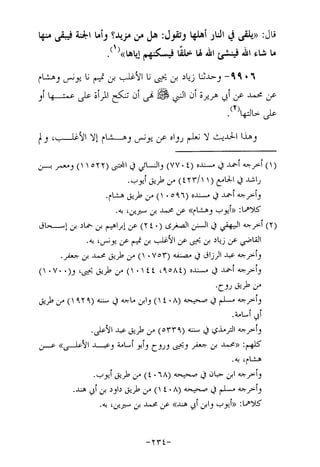 قال: «يلقى في النار أهلها وتقول: هل من مزيد؟ وأما الجنة فيبقى منها
ما شاء الله فينشئ الله لها خلقًا فيسكنهم إياها»(١).
٩٩٠٦- وحدثنا زياد بن يحيى بن الأغلب بن تميم نا يونس وهشام
عن محمد عن أبي هريرة أن النبي ﷺ نهى أن تنكح المرأة على عمتـــها أو
على خالتها(٢).
وهذا الحديث لا نعلم رواه عن يونس وهـــشام إلا الأغلـــب، و لم
(١) أخرجه أحمد في مسنده (٧٧٠٤) والنسائي في المجتبى (١١٥٢٢) ومعمر بـــن
راشد في الجامع (٤٢٣/١١) من طريق أيوب.
وأخرجه أحمد في مسنده (١٠٥٩٦) من طريق هشام.
كلاهما: «أيوب وهشام» عن محمد بن سيرين، به.
(٢) أخرجه البيهقي في السنن الصغرى (٢٤٠) عن إبراهيم بن حماد بن إســـحاق
القاضي عن زياد بن يحيى عن الأغلب بن تميم عن يونس، به.
وأخرجه عبد الرزاق في مصنفه (١٠٧٥٣) من طريق محمد بن جعفر.
وأخرجه أحمد في مسنده (٩٥٨٤، ١٠١٤٤) من طريق يحيى، و(١٠٧٠٠)
من طريق روح.
وأخرجه مسلم في صحيحه (١٤٠٨) وابن ماجه في سننه (١٩٢٩) من طريق
أبي أسامة.
وأخرجه الترمذي في سننه (٥٣٣٩) من طريق عبد الأعلى.
كلهم: «محمد بن جعفر ويحيى وروح وأبو أسامة وعبـــد الأعلـــى» عـــن
هشام، به.
وأخرجه ابن حبان في صحيحه (٤٠٦٨) من طريق أيوب.
وأخرجه مسلم في صحيحه (١٤٠٨) من طريق داود بن أبي هند.
كلاهما: «أيوب وابن أبي هند» عن محمد بن سيرين، به.
-٢٣٤-